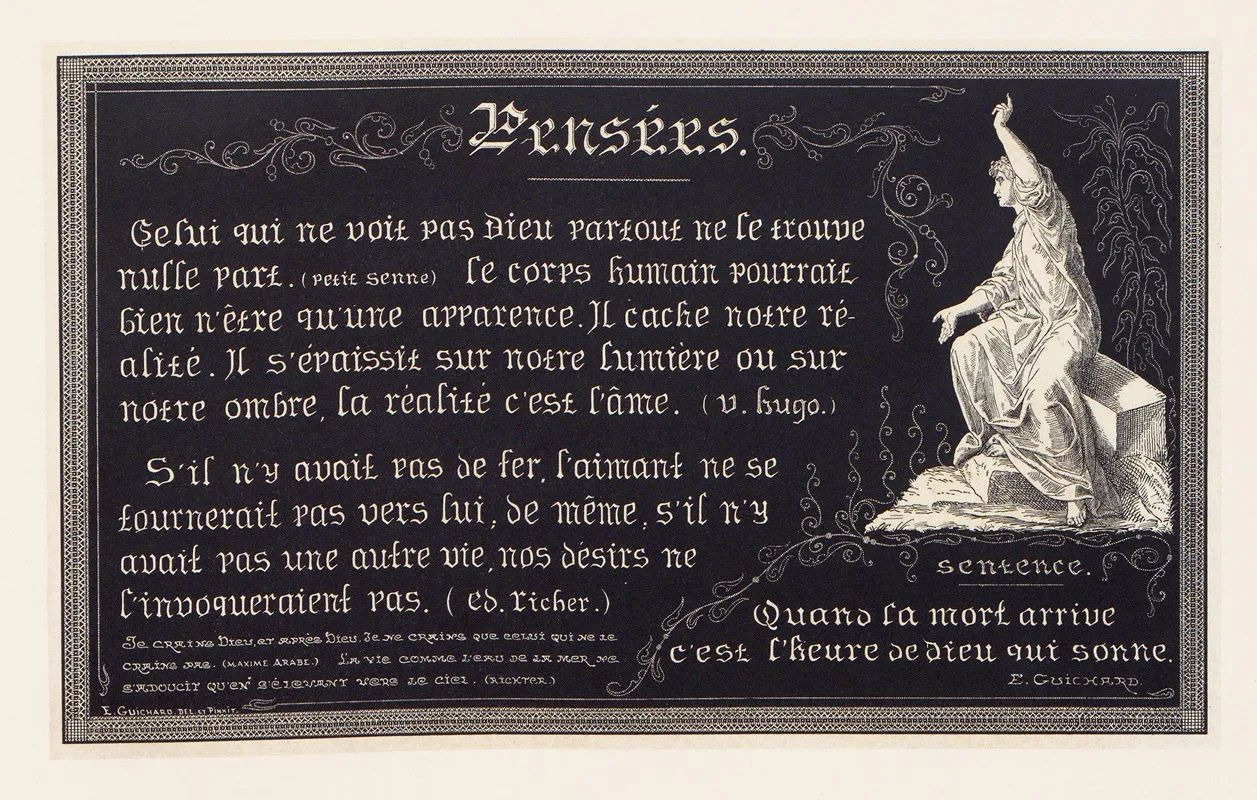 Pensées.
Celui qui ne voit pas Dieu partout ne le trouve
nulle part. (petit Senne) le corps humain pourrait
bien n'être qu'une apparence. Il cache notre ré-
alité. Il s'épaissit sur notre lumière ou sur
notre ombre, la réalité c'est l'âme. (V. hugo.)
S'il n'y avait pas de fer, l'aimant ne se
tournerait pas vers lui, de même, s'il n'y
avait pas une autre vie, nos désirs ne
l'invoqueraient pas. (Ed. Richer.)
Je crains Dieu, et après Dieu, Je ne crains que celui qui ne le
crains pas. (maxime arabe.) La vie comme l'eau de la mer ne
s'adoucit qu'en s'élevant vers le ciel. (Richter.)
E. Guichard. del. et Pinxit.
sentence.
Quand la mort arrive
c'est l'heure de Dieu qui sonne.
E. Guichard.